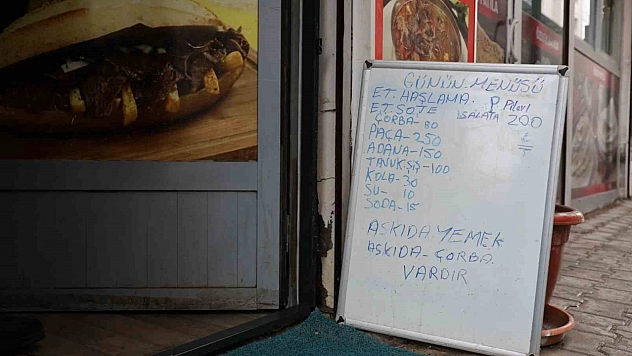 GÜNÜN MENÜSÜ
ET. HAŞLAMA. P Pilavı
ET. SOTE SALATA 200
ÇORBA-80 TL
PAÇA-250
ADANA-150
TAVUK ŞİŞ-100
KOLA-30
SU- 10
SODA-15
ASKIDA YEMEK
ASKIDA-ÇORBA.
VARDIR